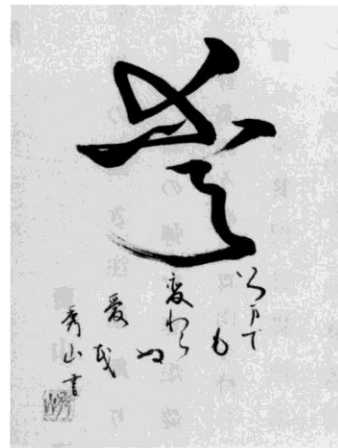 愛
いつまで
も
変わら
ぬ
愛を
秀山書